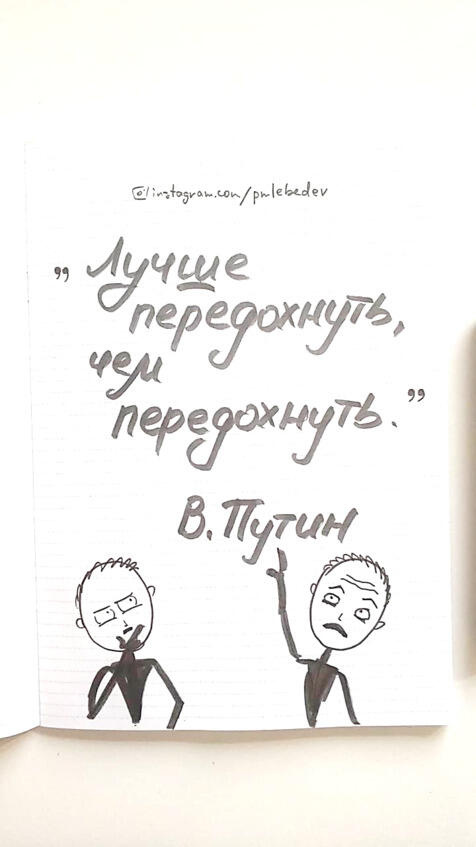 instagram.com/pmlebedev
„ Лучше
передохнуть,
чем
передохнуть. ”
В. Путин